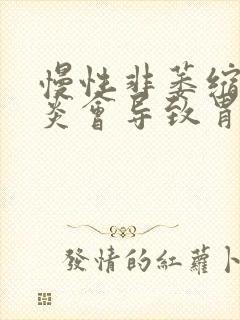 慢性非萎缩
炎會导致胃
發情的紅蘿卜